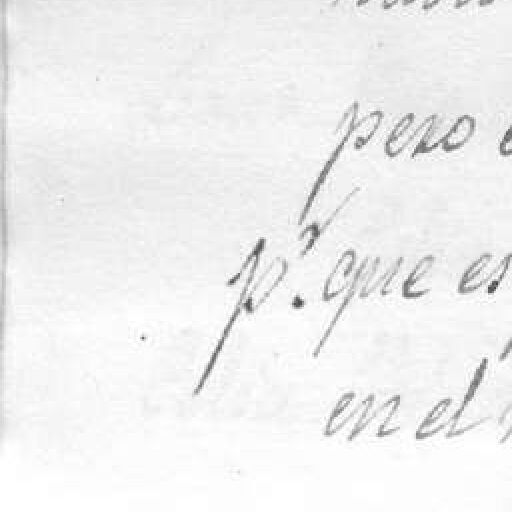 pero
p.r que es
en el